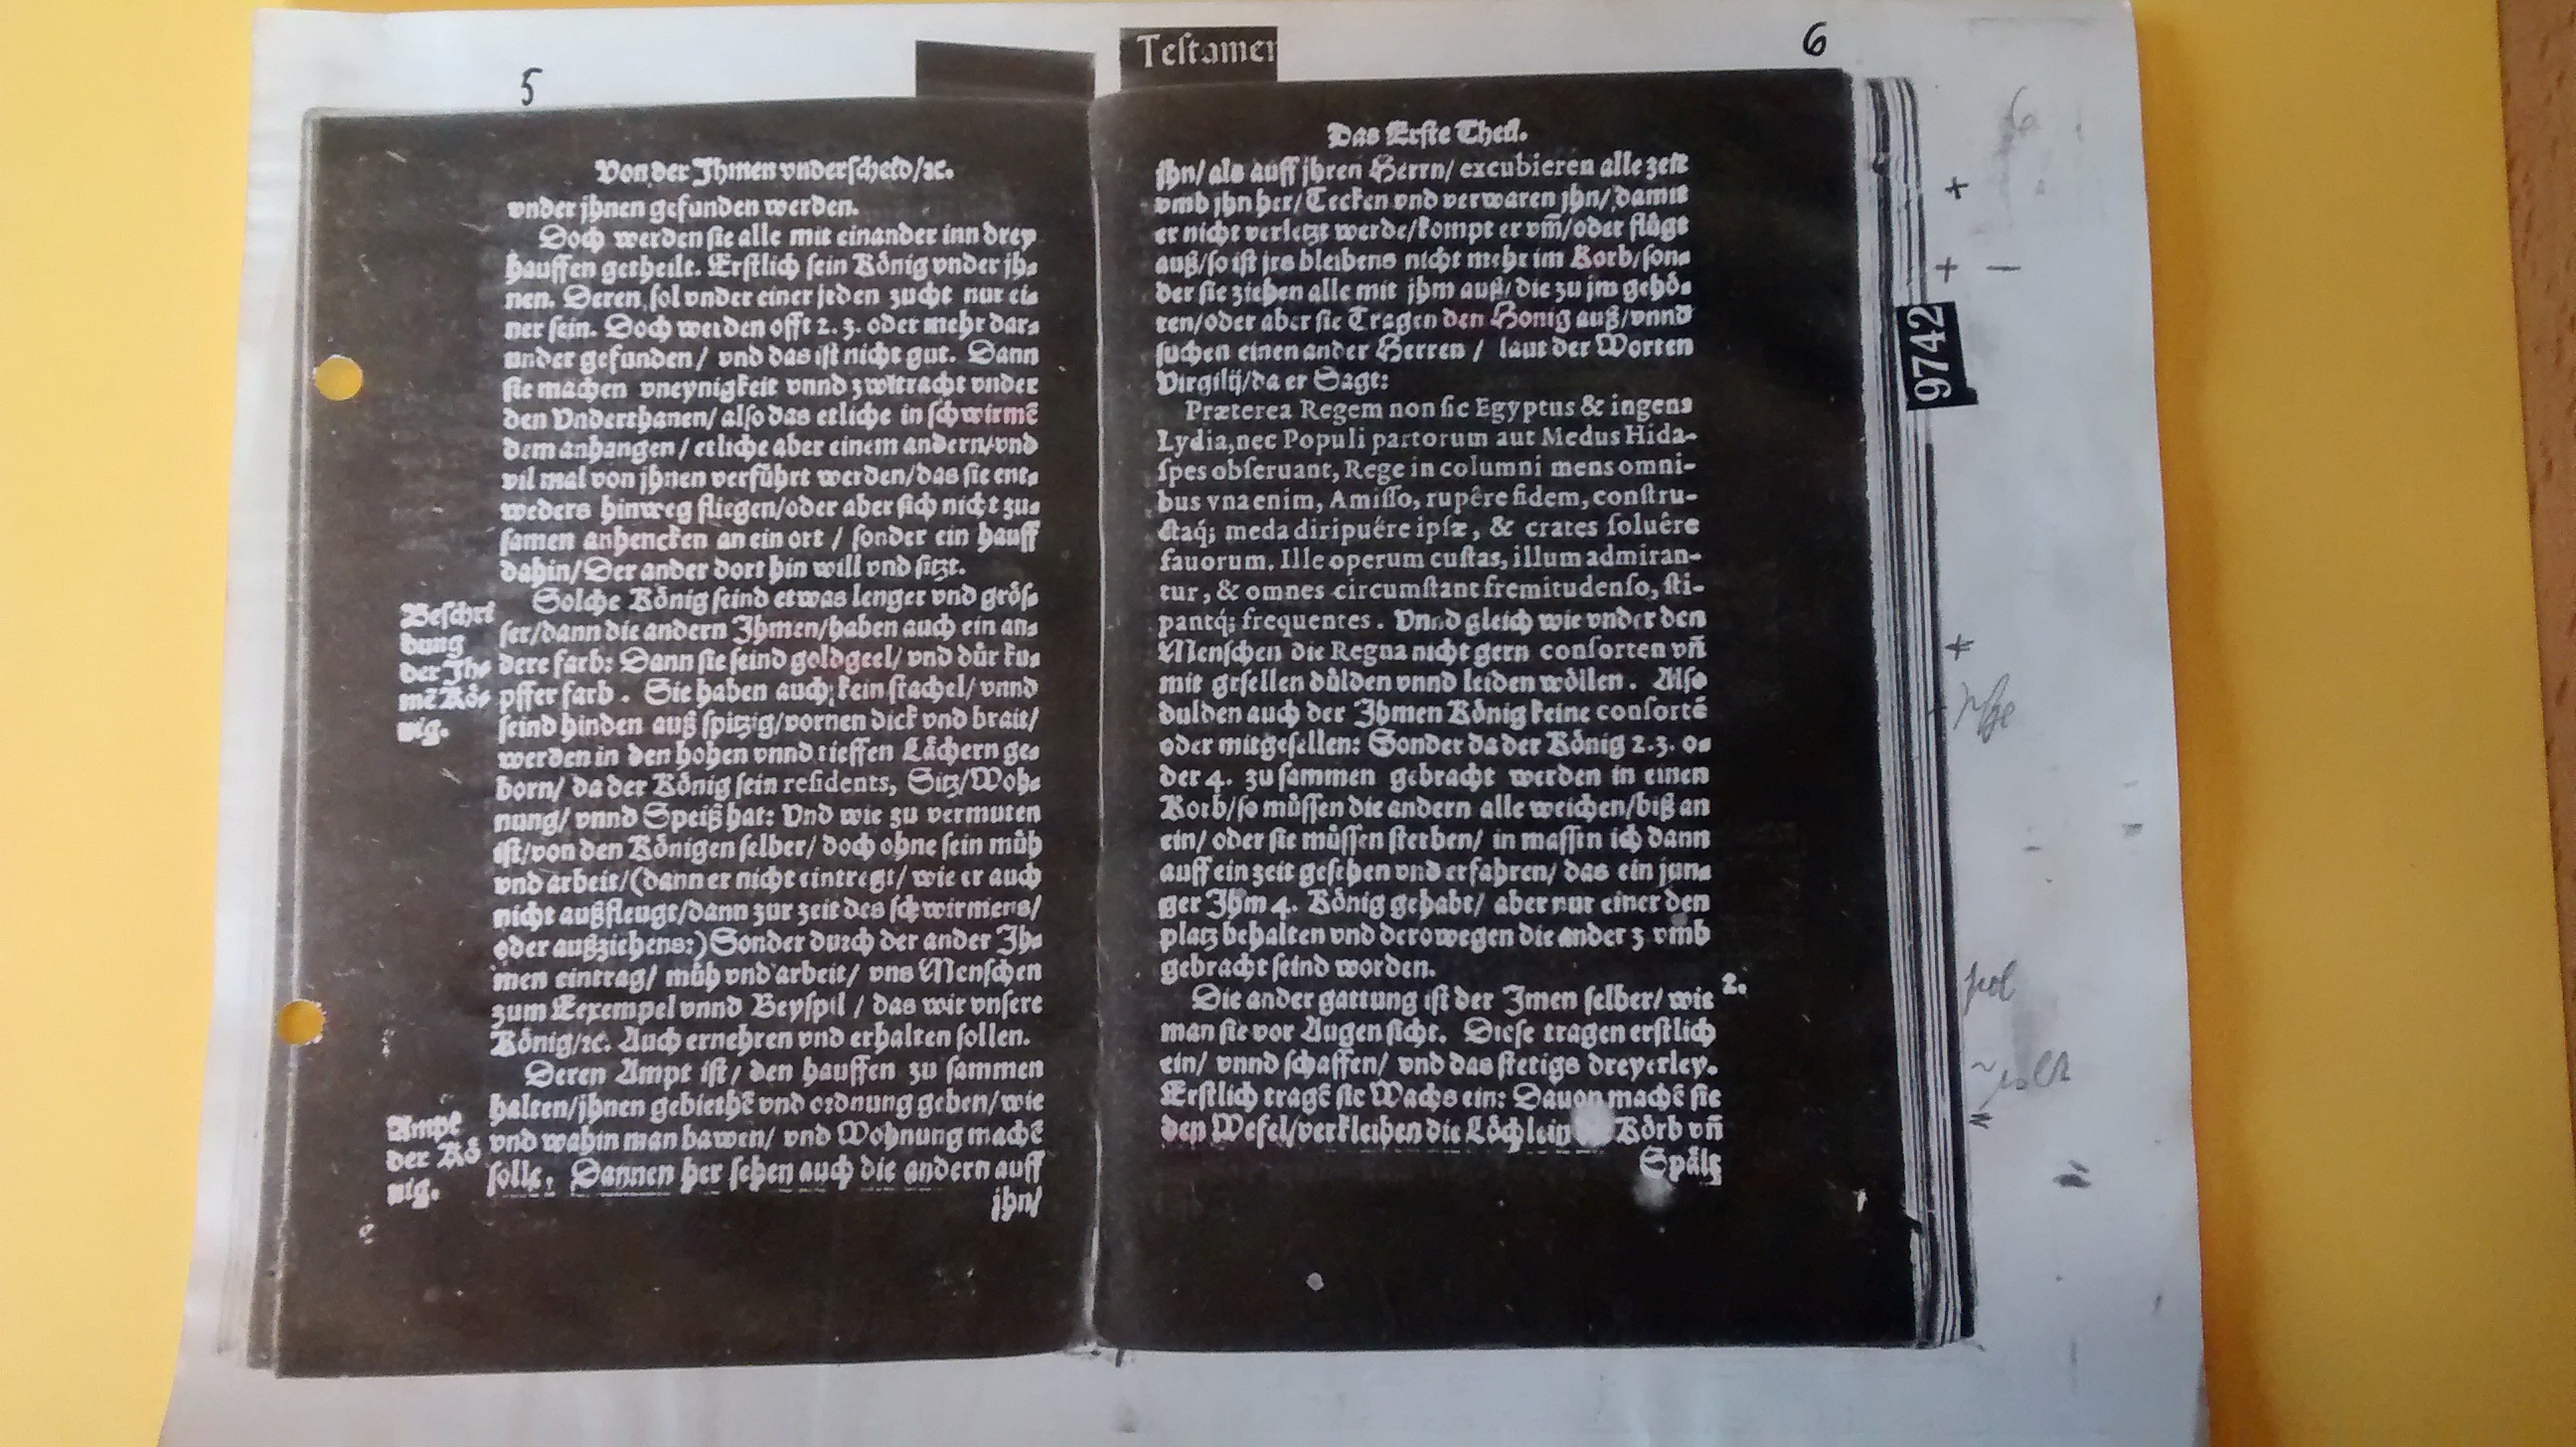 5
Von der Ihmen vnderscheid/ꝛc.
vnder jhnen gefunden werden.
Doch werden sie alle mit einander inn drey
hauffen getheilt. Erstlich sein König vnder jh⸗
nen. Deren sol vnder einer jeden zucht nur ei⸗
ner sein. Doch werden offt 2. 3. oder mehr dar⸗
under gefunden/ vnd das ist nicht gut. Dann
sie machen vneynigkeit vnnd zwitracht vnder
den Vnderthanen/ also das etliche in schwirmē
dem anhangen/ etliche aber einem andern/vnd
vil mal von jhnen verführt werden/das sie ent⸗
weders hinweg fliegen/oder aber sich nicht zu⸗
samen anhencken an ein ort / sonder ein hauff
dahin/ Der ander dort hin will vnd sitzt.
Solche König seind etwas lenger vnd grös⸗
ser/dann die andern Ihmen/haben auch ein an⸗
dere farb: Dann sie seind goldgeel/ vnd dür ku⸗
pffer farb. Sie haben auch kein stachel/ vnnd
seind hinden auß spitzig/vornen dick vnd brait/
werden in den hohen vnnd tieffen Lächern ge⸗
born/ da der König sein residents, Sitz/Woh⸗
nung/ vnnd Speiß hat: Vnd wie zu vermuten
ist/von den Königen selber/ doch ohne sein müh
vnd arbeit/(dann er nicht eintregt/ wie er auch
nicht außfleugt/dann zur zeit des schwirmens/
oder außziehens:) Sonder durch der ander Ih⸗
men eintrag/ müh vnd arbeit/ vns Menschen
zum Eexempel vnnd Beyspil / das wir vnsere
König/ꝛc. Auch ernehren vnd erhalten sollen.
Deren Ampt ist/ den hauffen zu sammen
halten/jhnen gebiethē vnd ordnung geben/wie
vnd wahin man bawen/ vnd Wohnung machē
solle. Dannen her sehen auch die andern auff
jhn/
Beschri
bung
der Ih⸗
mē Kö⸗
nig.
Ampt
der Kö
nig.
Testamen
6
Das Erste Theil.
jhn/ als auff jhren Herrn/ excubieren alle zeit
vmb jhn her/ Tecken vnd verwaren jhn/ damit
er nicht verletzt werde/kompt er vm̄/oder flügt
auß/so ist jrs bleibens nicht mehr im Korb/son⸗
der sie ziehen alle mit jhm auß/ die zu jm gehö⸗
ren/oder aber sie Tragen den Honig auß/vnnd
suchen einen ander Herren / laut der Worten
Virgilij/da er Sagt:
Præterea Regem non sic Egyptus & ingens
Lydia, nec Populi partorum aut Medus Hida-
spes obseruant, Rege in columni mens omni-
bus vna enim, Amisso, rupêre fidem, constru-
ctaq́; meda diripuêre ipsæ, & crates soluêre
fauorum. Ille operum custas, illum admiran-
tur, & omnes circumstant fremitudenso, sti-
pantq́; frequentes. Vnnd gleich wie vnder den
Menschen die Regna nicht gern consorten vn̄
mit gesellen dülden vnnd leiden wöllen. Also
dulden auch der Ihmen König keine consortē
oder mitgesellen: Sonder da der König 2. 3. o⸗
der 4. zu sammen gebracht werden in einen
Korb/so müssen die andern alle weichen/biß an
ein/ oder sie müssen sterben/ in massen ich dann
auff ein zeit gesehen vnd erfahren/ das ein jun⸗
ger Ihm 4. König gehabt/ aber nur einer den
platz behalten vnd derowegen die ander 3 vmb
gebracht seind worden.
Die ander gattung ist der Imen selber/ wie
man sie vor Augen sicht. Diese tragen erstlich
ein/ vnnd schaffen/ vnd das stetigs dreyerley.
Erstlich tragē sie Wachs ein: Dauon machē sie
den Wefel/verkleiben die Löchlein Körb vn̄
Spältz
2.
9742